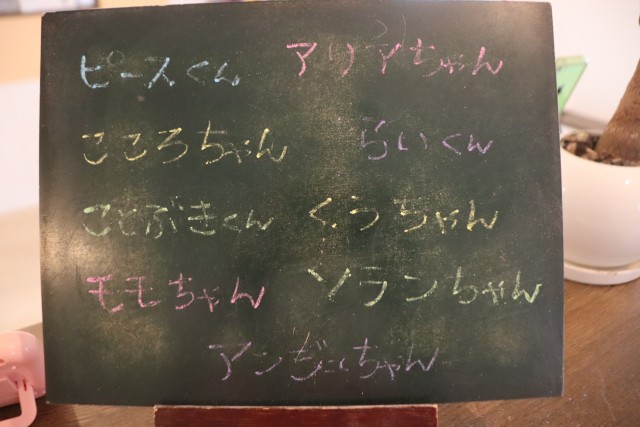 ピースくん アリアちゃん
こころちゃん らいくん
ことぶきくん くうちゃん
モモちゃん ソランちゃん
アンジーちゃん